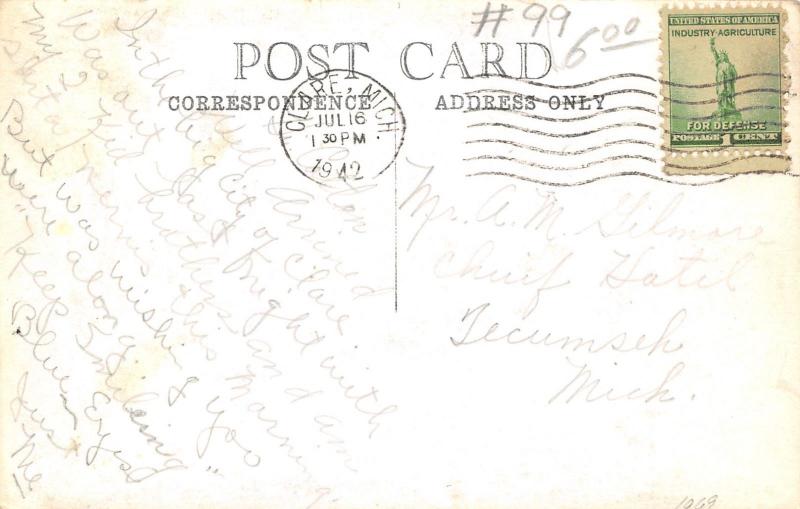 # 99
6 00
UNITED STATES OF AMERICA
INDUSTRY·AGRICULTURE
FOR DEFENSE
POSTAGE 1 CENT
POST CARD
CORRESPONDENCE
ADDRESS ONLY
CLARE, MICH.
JUL 16
1 30 PM
1942
Well
Arrived
In the big city of Clare
Was out last night with
my 2 kid brothers and am
this Morning.
But was wishing you
were along.
"Keep Smiling"
Blue Eyed
Just
Me
Mr. A. M. Gilmore
Chief Hotel
Tecumseh
Mich.
1969